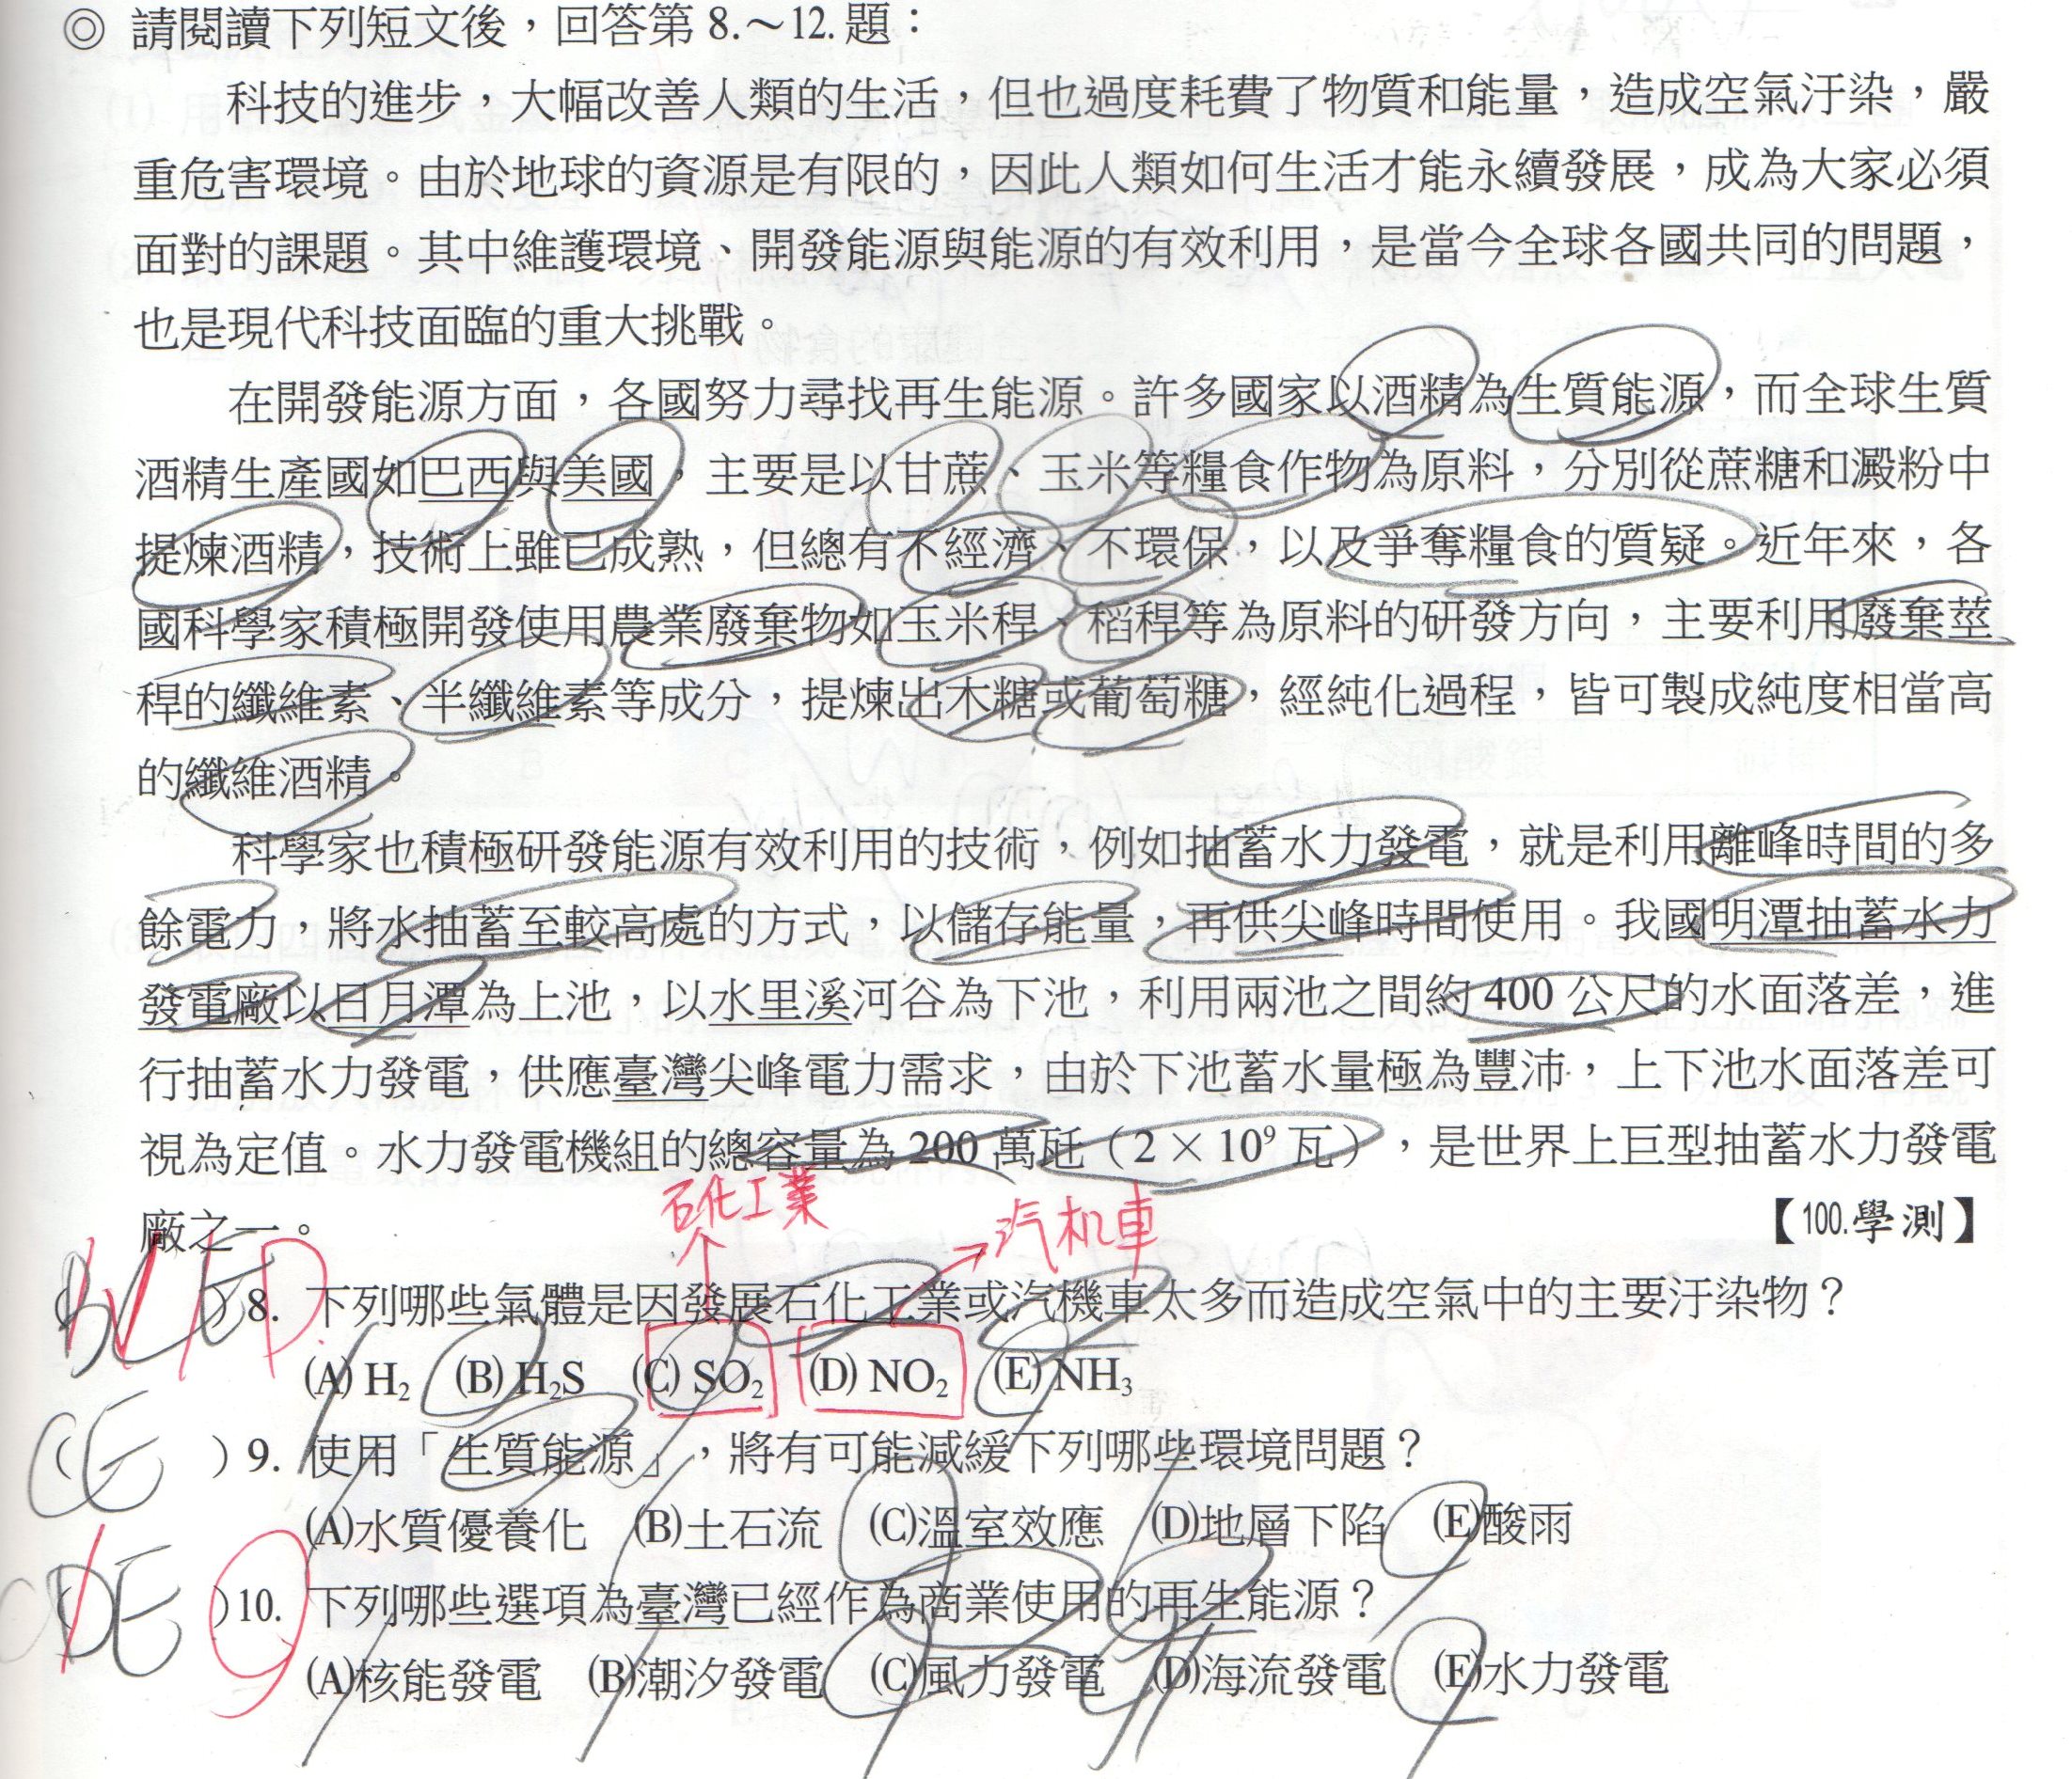 ◎ 請閱讀下列短文後，回答第 8.～12. 題：
科技的進步，大幅改善人類的生活，但也過度耗費了物質和能量，造成空氣汙染，嚴
重危害環境。由於地球的資源是有限的，因此人類如何生活才能永續發展，成為大家必須
面對的課題。其中維護環境、開發能源與能源的有效利用，是當今全球各國共同的問題，
也是現代科技面臨的重大挑戰。
在開發能源方面，各國努力尋找再生能源。許多國家以酒精為生質能源，而全球生質
酒精生產國如巴西與美國，主要是以甘蔗、玉米等糧食作物為原料，分別從蔗糖和澱粉中
提煉酒精，技術上雖已成熟，但總有不經濟、不環保，以及爭奪糧食的質疑。近年來，各
國科學家積極開發使用農業廢棄物如玉米稈、稻稈等為原料的研發方向，主要利用廢棄莖
稈的纖維素、半纖維素等成分，提煉出木糖或葡萄糖，經純化過程，皆可製成純度相當高
的纖維酒精。
科學家也積極研發能源有效利用的技術，例如抽蓄水力發電，就是利用離峰時間的多
餘電力，將水抽蓄至較高處的方式，以儲存能量，再供尖峰時間使用。我國明潭抽蓄水力
發電廠以日月潭為上池，以水里溪河谷為下池，利用兩池之間約 400 公尺的水面落差，進
行抽蓄水力發電，供應臺灣尖峰電力需求，由於下池蓄水量極為豐沛，上下池水面落差可
視為定值。水力發電機組的總容量為 200 萬瓩（2 × 10⁹ 瓦），是世界上巨型抽蓄水力發電
廠之一。
【100.學測】
石化工業
汽机車
( BCED ) 8. 下列哪些氣體是因發展石化工業或汽機車太多而造成空氣中的主要汙染物？
(A) H₂ (B) H₂S (C) SO₂ (D) NO₂ (E) NH₃
( CE ) 9. 使用「生質能源」，將有可能減緩下列哪些環境問題？
(A)水質優養化 (B)土石流 (C)溫室效應 (D)地層下陷 (E)酸雨
( CDE ) 10. 下列哪些選項為臺灣已經作為商業使用的再生能源？
(A)核能發電 (B)潮汐發電 (C)風力發電 (D)海流發電 (E)水力發電